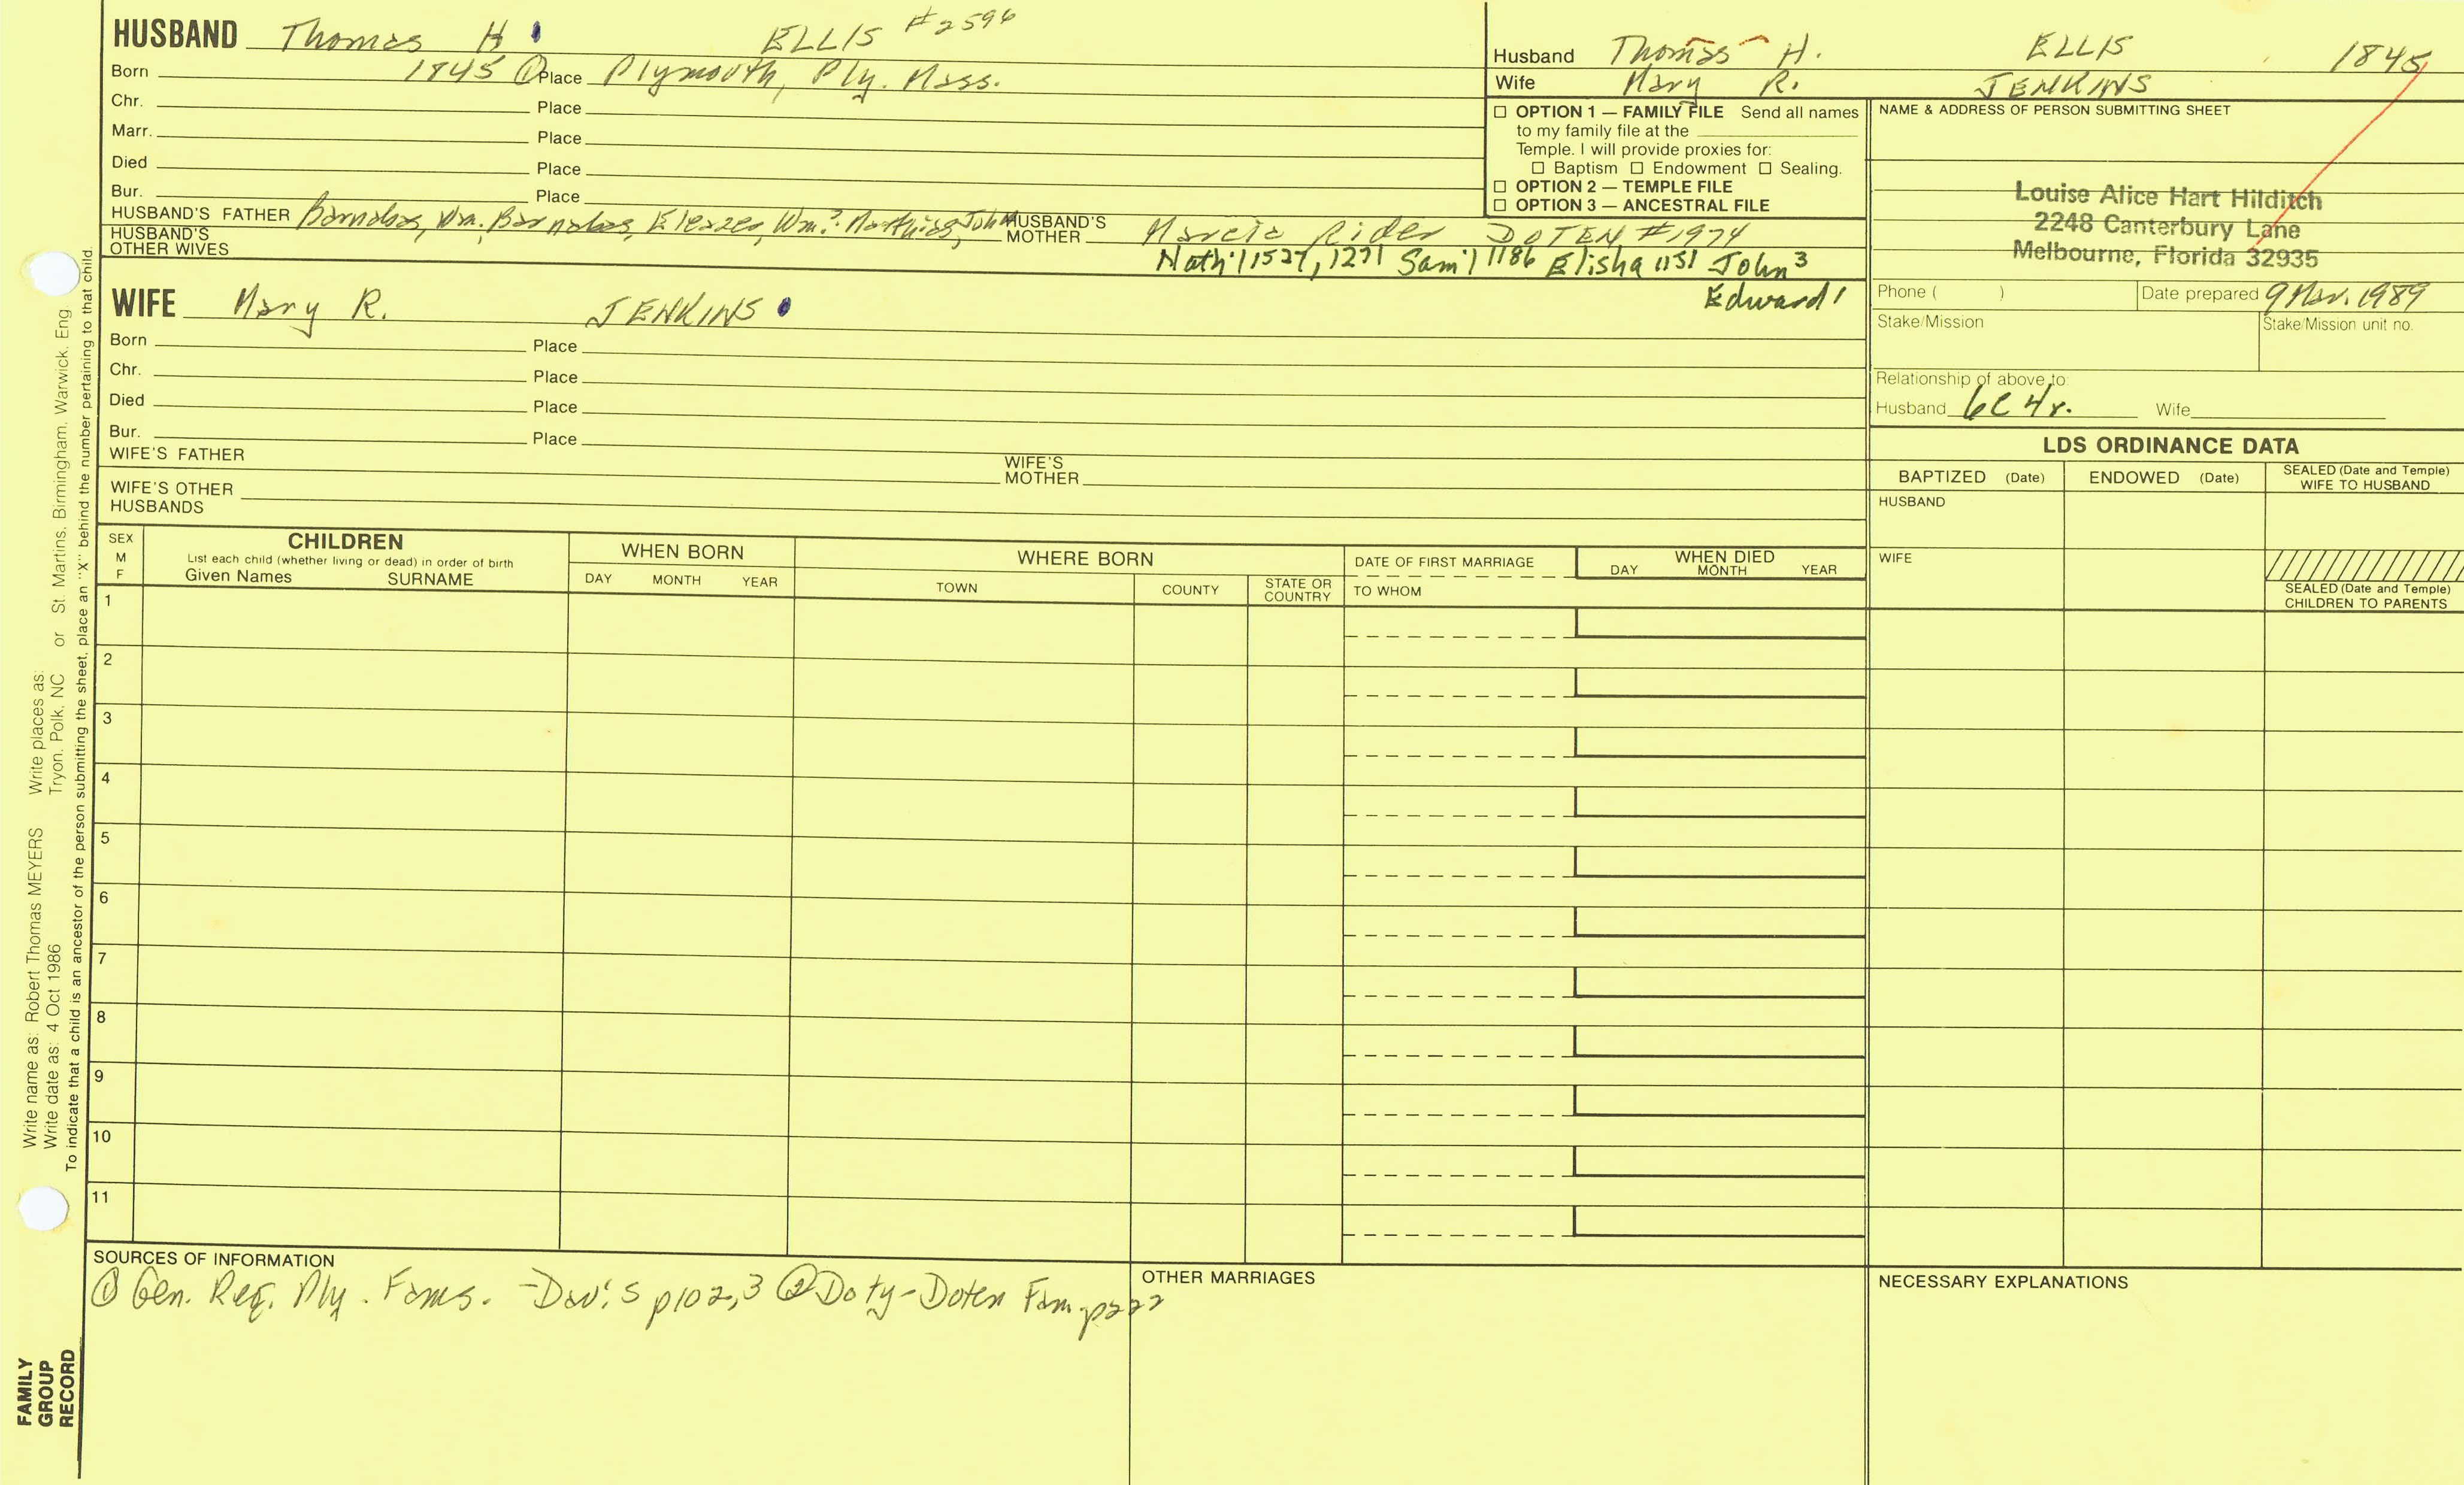 HUSBAND Thomas H. ELLIS #2596
Born 1845 ① Place Plymouth, Ply. Mass.
Chr. Place
Marr. Place
Died Place
Bur. Place
HUSBAND'S FATHER Barnabas, Wm., Barnabas, Eleazer, Wm.? Matthias, John HUSBAND'S MOTHER Marcia Rider DOTEN #1974
HUSBAND'S OTHER WIVES
Nath'l 1527, 1271 Sam'l 1186 Elisha 1151 John 3
Edward 1
Husband Thomas H. ELLIS 1845
Wife Mary R. JENKINS
☐ OPTION 1 — FAMILY FILE Send all names
to my family file at the
Temple. I will provide proxies for:
☐ Baptism ☐ Endowment ☐ Sealing.
☐ OPTION 2 — TEMPLE FILE
☐ OPTION 3 — ANCESTRAL FILE
NAME & ADDRESS OF PERSON SUBMITTING SHEET
Louise Alice Hart Hilditch
2248 Canterbury Lane
Melbourne, Florida 32935
Phone ( ) Date prepared 9 Mar. 1989
Stake/Mission Stake/Mission unit no.
Relationship of above to:
Husband 6C4r. Wife
WIFE Mary R. JENKINS
Born Place
Chr. Place
Died Place
Bur. Place
WIFE'S FATHER WIFE'S MOTHER
WIFE'S OTHER HUSBANDS
LDS ORDINANCE DATA
BAPTIZED (Date) ENDOWED (Date) SEALED (Date and Temple) WIFE TO HUSBAND
HUSBAND
WIFE
SEALED (Date and Temple) CHILDREN TO PARENTS
SEX M F
CHILDREN
List each child (whether living or dead) in order of birth
Given Names SURNAME
WHEN BORN
DAY MONTH YEAR
WHERE BORN
TOWN COUNTY STATE OR COUNTRY
DATE OF FIRST MARRIAGE
TO WHOM
WHEN DIED
DAY MONTH YEAR
1
2
3
4
5
6
7
8
9
10
11
SOURCES OF INFORMATION
① Gen. Reg. Ply. Fams. - Davis p102,3 ② Doty-Doten Fam. p222
OTHER MARRIAGES
NECESSARY EXPLANATIONS
Write name as: Robert Thomas MEYERS Write places as:
Write date as: 4 Oct 1986 Tryon, Polk, NC or St. Martins, Birmingham, Warwick, Eng.
To indicate that a child is an ancestor of the person submitting the sheet, place an "X" behind the number pertaining to that child.
FAMILY
GROUP
RECORD